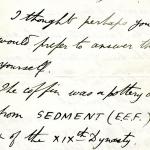 I thought perhaps you
would prefer to answer th
yourself.
The coffin was a pottery o
from SEDMENT (E.E.F.)
of the XIXth Dynasty.